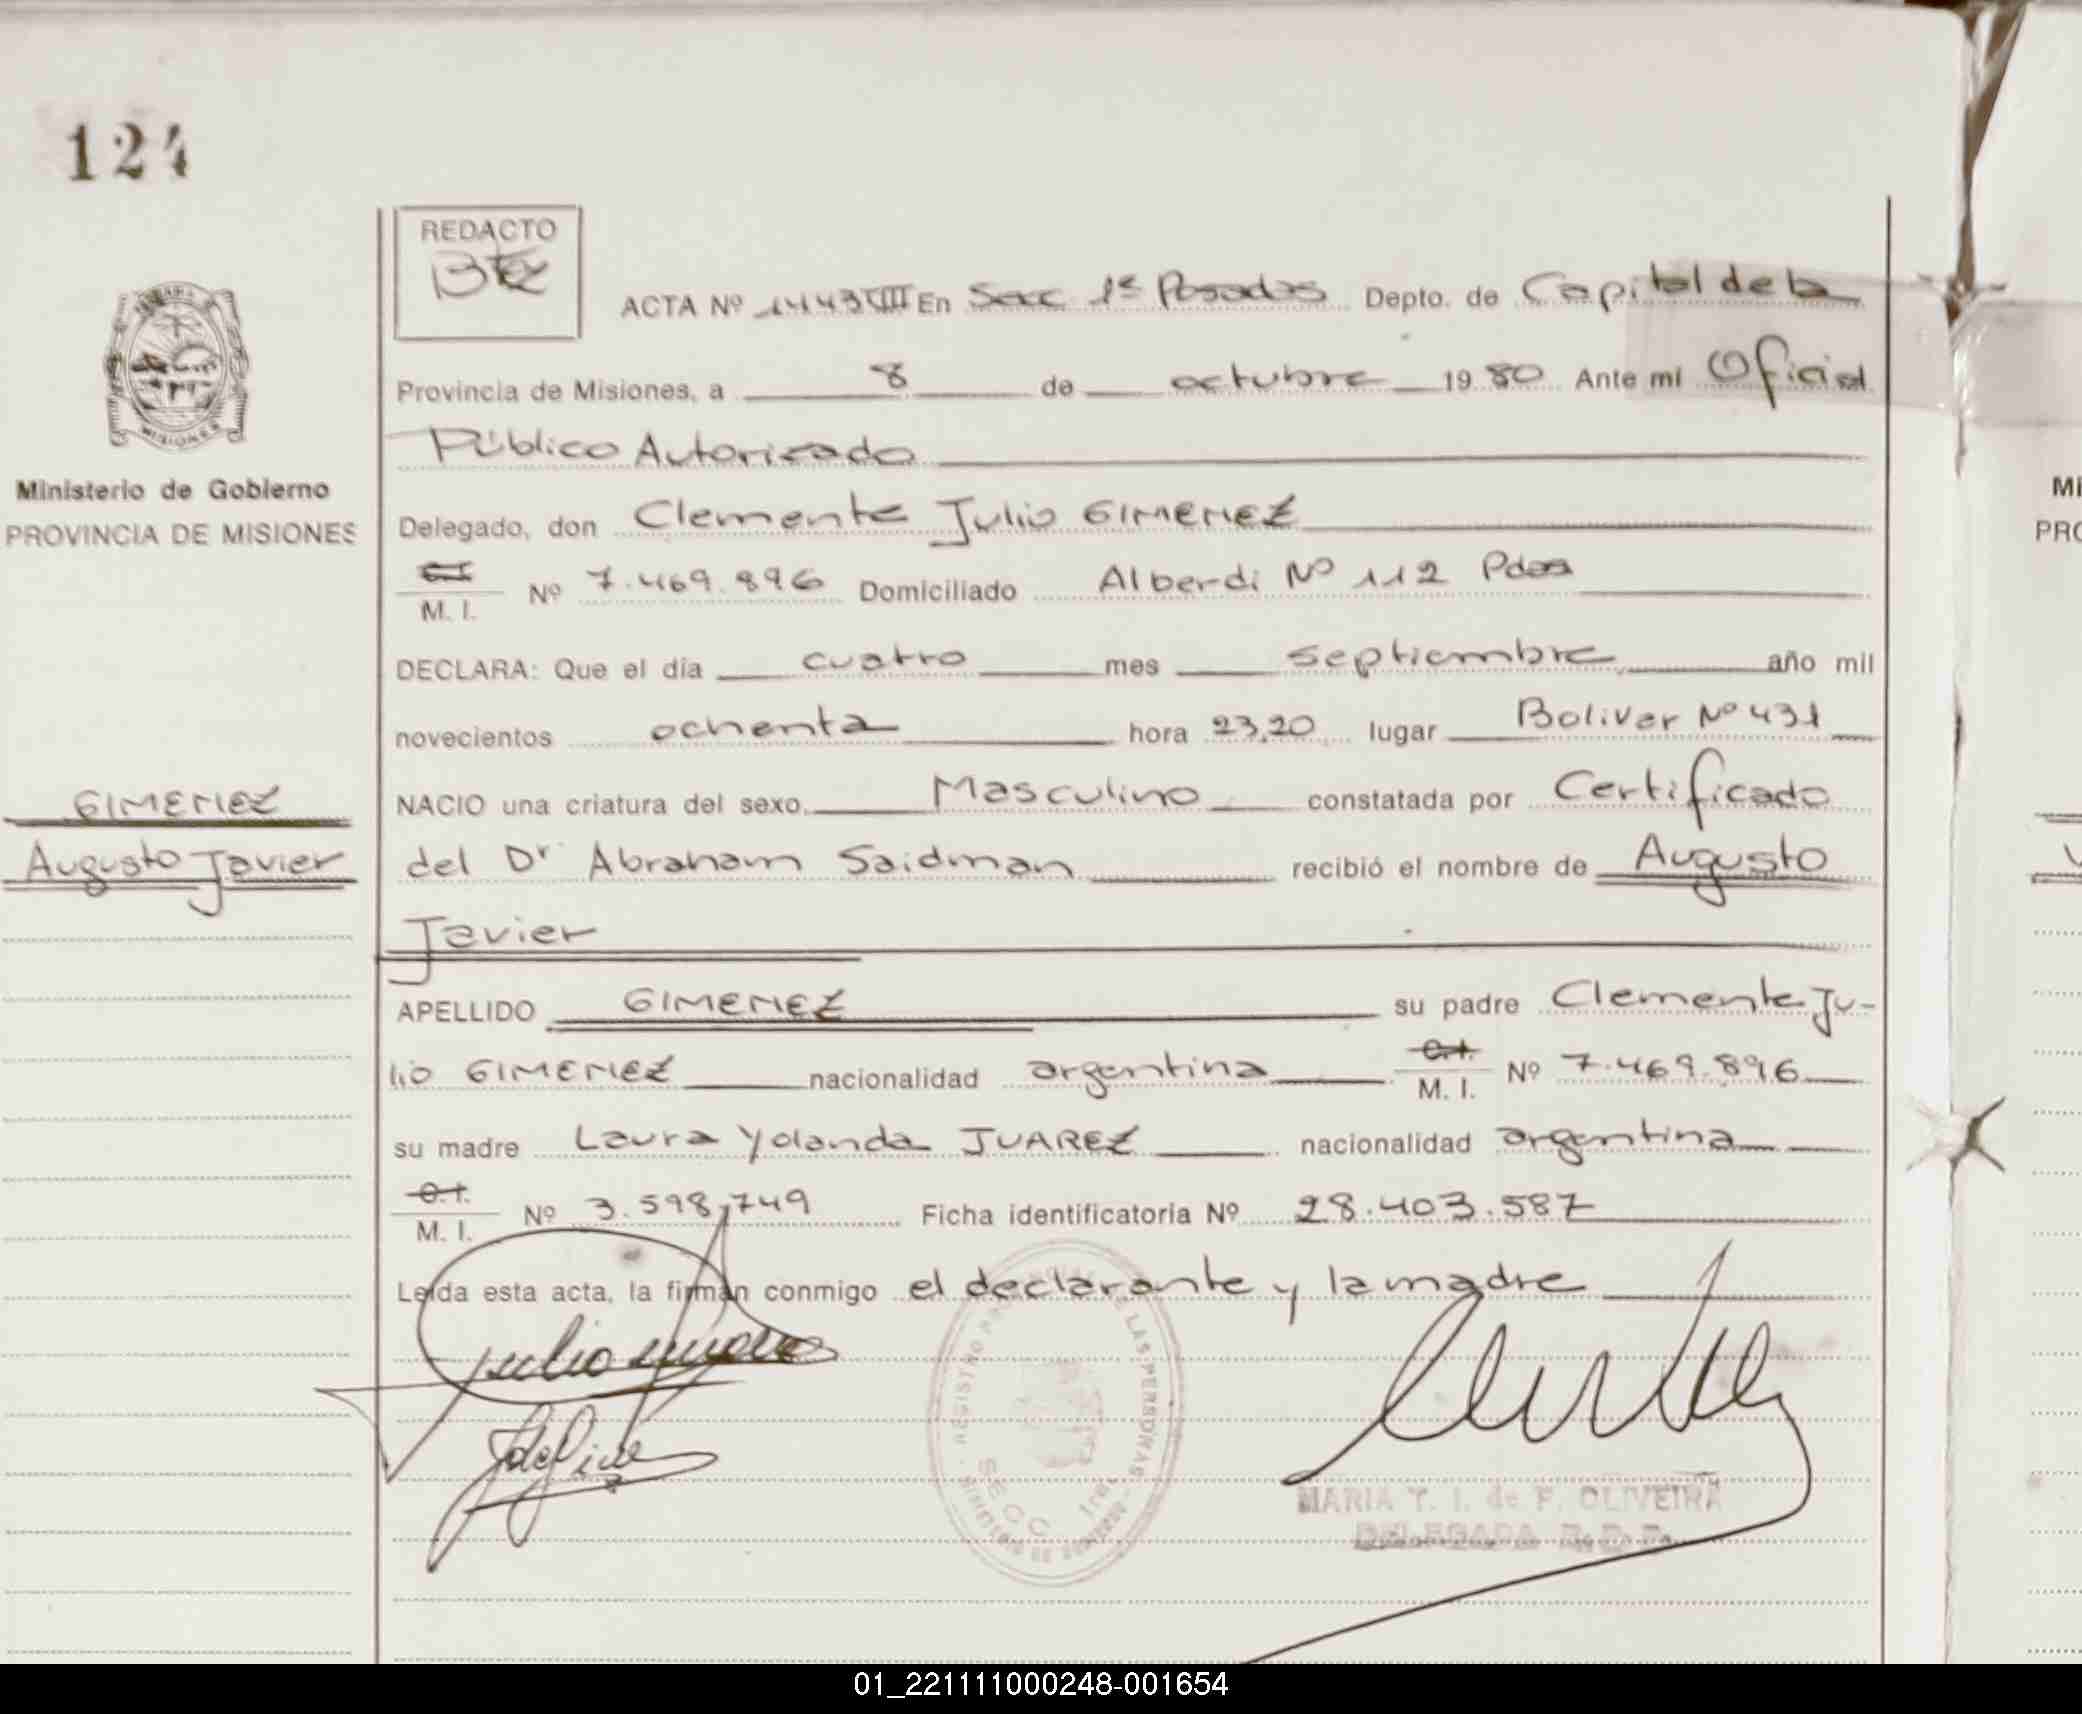 124
REDACTO
ACTA Nº 1443 VIII En Secc 1ª Posadas Depto. de Capital de la
Provincia de Misiones, a 8 de octubre 1980 Ante mi Oficial
Público Autorizado
MISIONES
Ministerio de Gobierno
PROVINCIA DE MISIONES
Delegado, don Clemente Julio GIMENEZ
C.I.
M. I. Nº 7.469.896 Domiciliado Alberdi Nº 112 Pdas
DECLARA: Que el día cuatro mes septiembre año mil
novecientos ochenta hora 23,20 lugar Bolivar Nº 431
GIMENEZ
NACIO una criatura del sexo Masculino constatada por Certificado
Augusto Javier
del Dr Abraham Saidman recibió el nombre de Augusto
Javier
APELLIDO GIMENEZ su padre Clemente Ju-
lio GIMENEZ nacionalidad argentina C.I. M. I. Nº 7.469.896
su madre Laura Yolanda JUAREZ nacionalidad argentina
C.I.
M. I. Nº 3.598.749 Ficha identificatoria Nº 28.403.587
Leída esta acta, la firman conmigo el declarante y la madre
REGISTRO PROVINCIAL DE LAS PERSONAS
SECC 1ra
MINISTERIO DE GOBIERNO
MARIA Y. I. de F. OLIVEIRA
DELEGADA R. D. P.
Mi
PRO
01_221111000248-001654